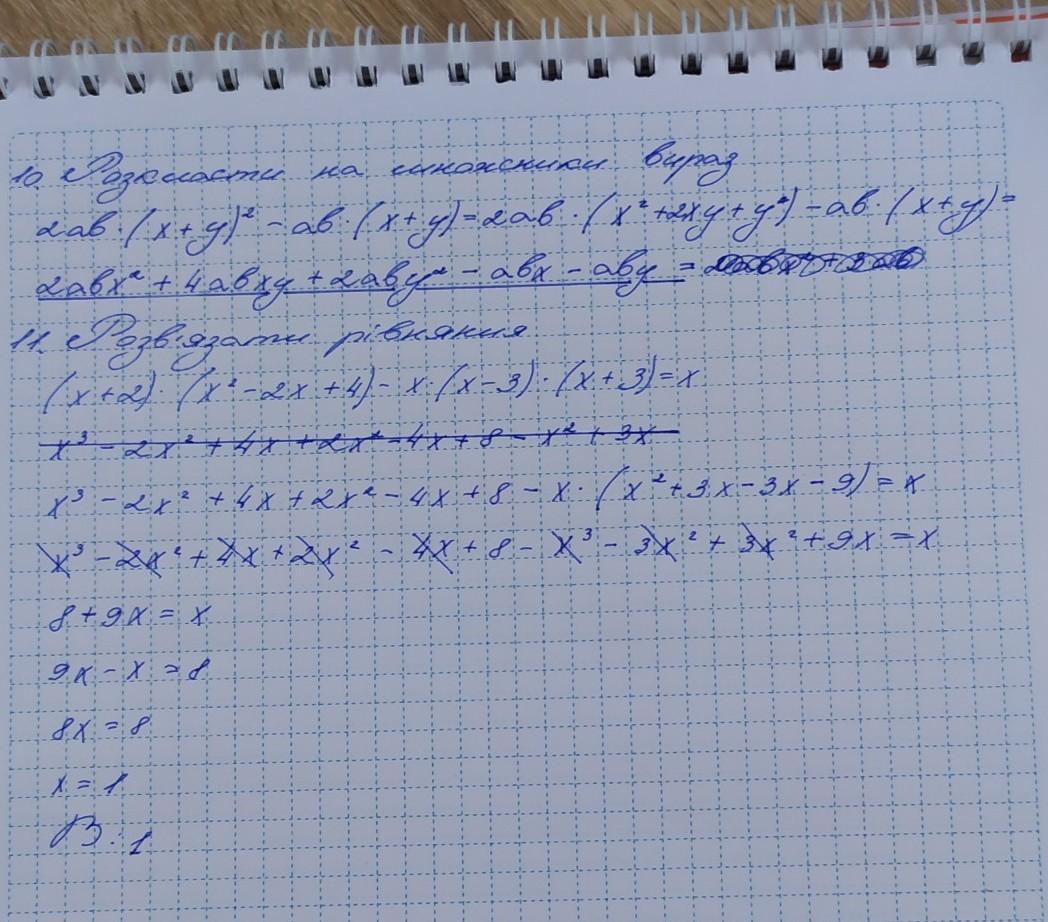 10. Розкласти на множники вираз
2ab·(x+y)²-ab·(x+y)=2ab·(x²+2xy+y²)-ab·(x+y)=
2abx²+4abxy+2aby²-abx-aby=
11. Розв'язати рівняння
(x+2)·(x²-2x+4)-x·(x-3)·(x+3)=x
x³-2x²+4x+2x²-4x+8-x²+3x
x³-2x²+4x+2x²-4x+8-x·(x²+3x-3x-9)=x
x³-2x²+4x+2x²-4x+8-x³-3x²+3x²+9x=x
8+9x=x
9x-x=8
8x=8
x=1
В:1